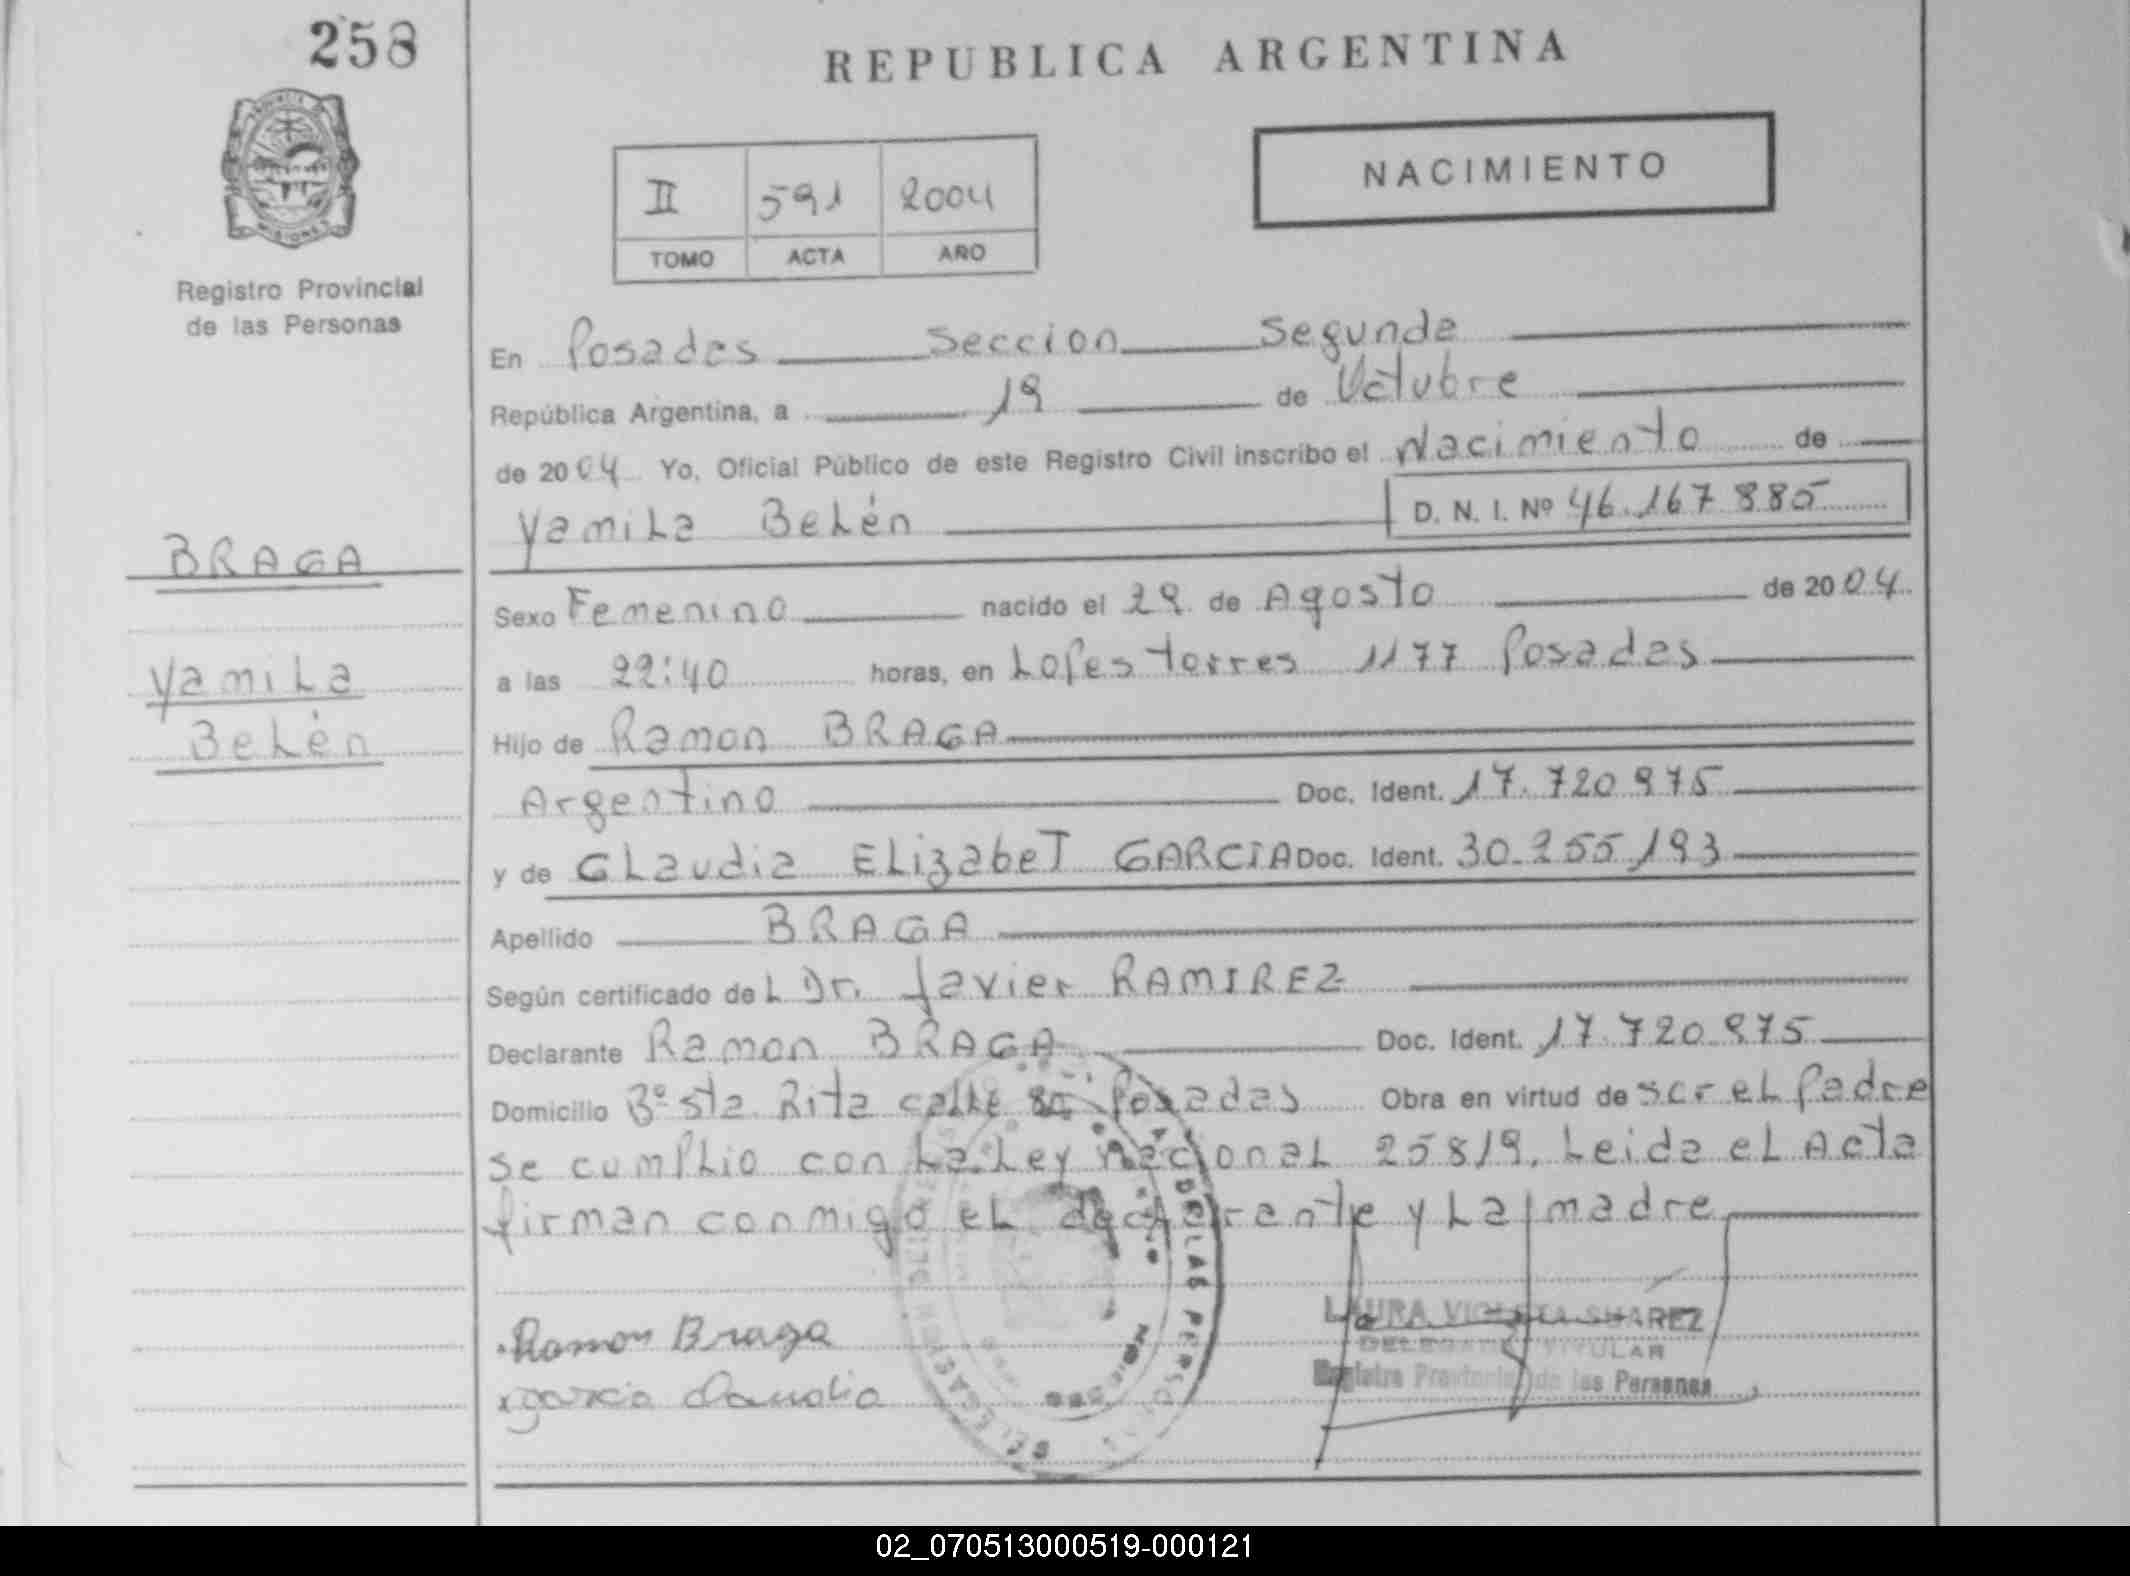 258
REPUBLICA ARGENTINA
NACIMIENTO
II 591 2004
TOMO ACTA AÑO
Registro Provincial
de las Personas
En Posadas Seccion Segunda
República Argentina, a 19 de Octubre
de 2004 Yo, Oficial Público de este Registro Civil inscribo el Nacimiento de
Yamila Belén D. N. I. Nº 46.167 885
BRAGA
Yamila
Belén
Sexo Femenino nacido el 29 de Agosto de 2004
a las 22:40 horas, en Lopes torres 1177 Posadas
Hijo de Ramon BRAGA
Argentino Doc. Ident. 17.720 975
y de CLaudia ELizabeT GARCIA Doc. Ident. 30.255.193
Apellido BRAGA
Según certificado del Dr. Javier RAMIREZ
Declarante Ramon BRAGA Doc. Ident. 17.720.975
Domicilio Bº Sta. Rita calle Posadas Obra en virtud de ser el Padre
Se cumplio con La Ley nacional 25819. Leida el Acta
firman conmigo el declarante y La madre
Ramon Braga
garcia Claudia
LAURA VIOLETA SUAREZ
DELEGADA TITULAR
Registro Provincial de las Personas
02_070513000519-000121